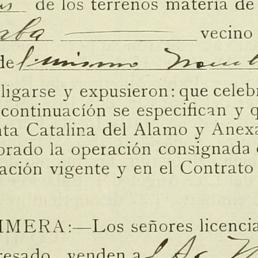 de los terrenos materia de
vecino
de mismo
ligarse y expusieron: que celebr
continuación se especifican y q
nta Catalina del Alamo y Anexa
brado la operación consignada e
ación vigente y en el Contrato
IMERA:—Los señores licencia
resado, venden a